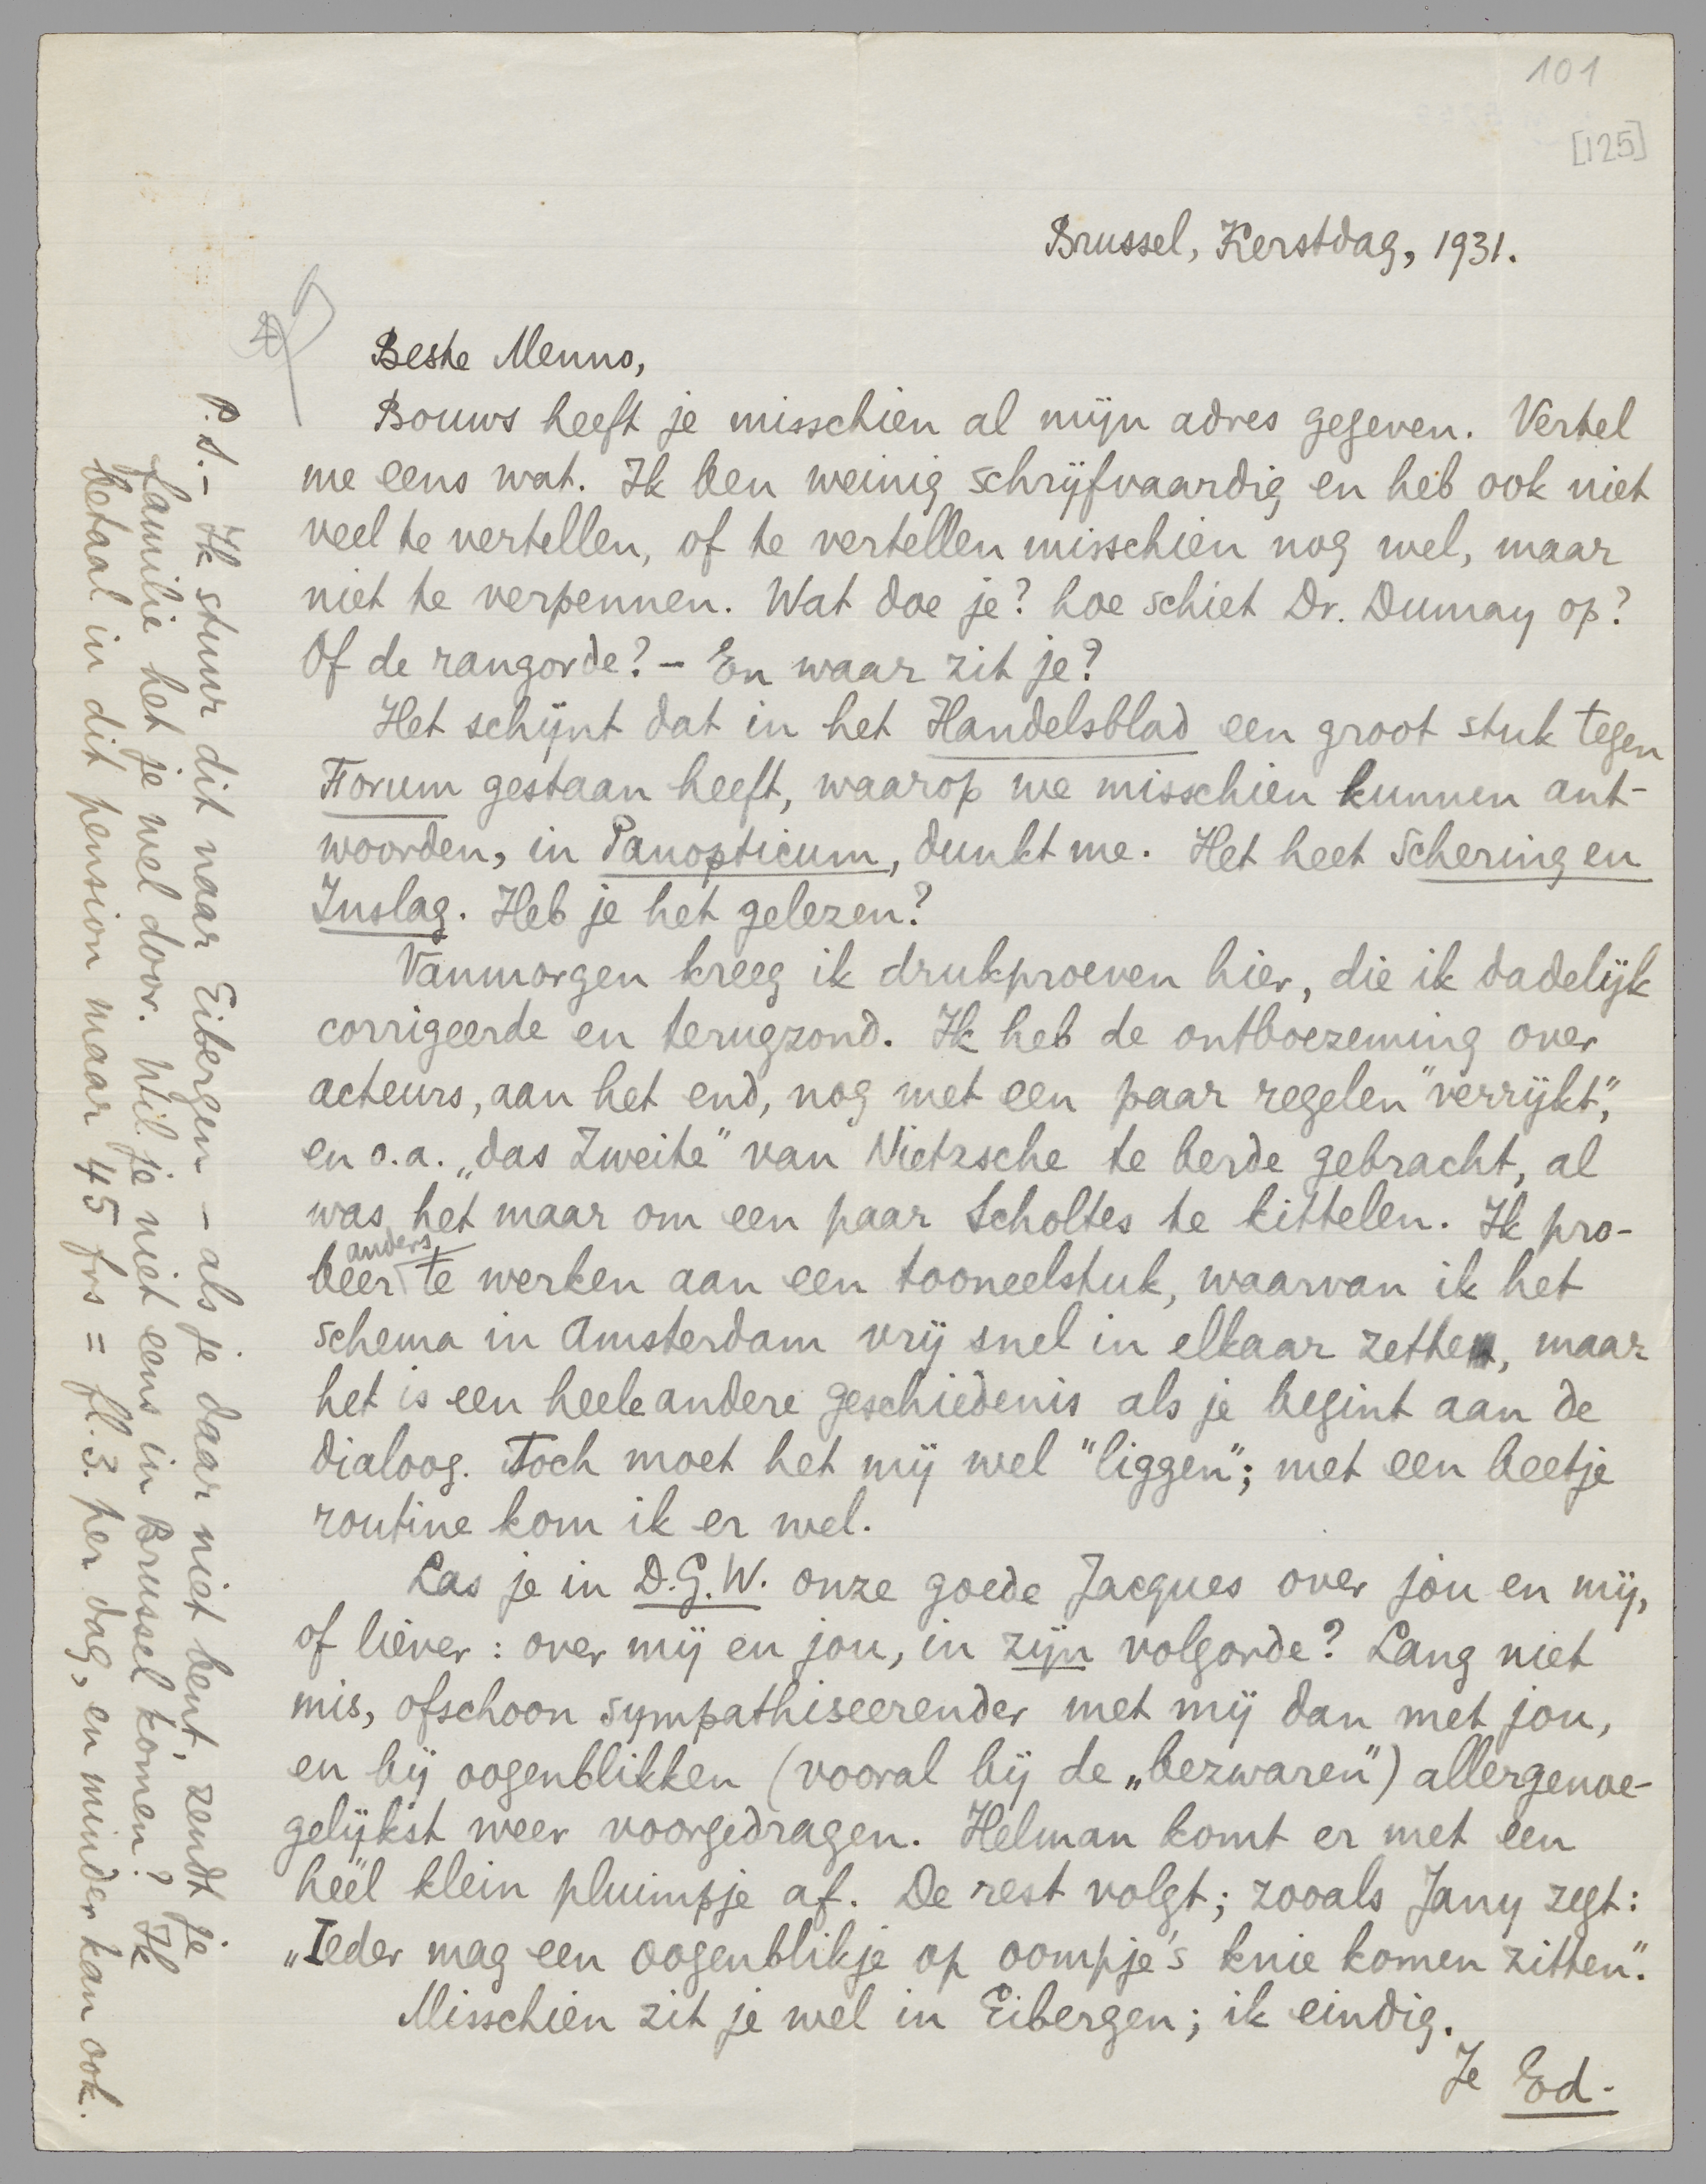 101
[125]
Brussel, Kerstdag, 1931.
Beste Menno,
Bouws heeft je misschien al mijn adres gegeven. Vertel
me eens wat. Ik ben weinig schrijfvaardig en heb ook niet
veel te vertellen, of te vertellen misschien nog wel, maar
niet te verpennen. Wat doe je? hoe schiet Dr. Dumay op?
Of de rangorde? – En waar zit je?
Het schijnt dat in het Handelsblad een groot stuk tegen
Forum gestaan heeft, waarop we misschien kunnen ant-
woorden, in Panopticum, dunkt me. Het heet Schering en
Inslag. Heb je het gelezen?
Vanmorgen kreeg ik drukproeven hier, die ik dadelijk
corrigeerde en terugzond. Ik heb de ontboezeming over
acteurs, aan het end, nog met een paar regelen "verrijkt",
en o.a. „das Zweite" van Nietzsche te berde gebracht, al
was het maar om een paar Scholtes te kittelen. Ik pro-
beer anders te werken aan een tooneelstuk, waarvan ik het
schema in Amsterdam vrij snel in elkaar zette, maar
het is een heele andere geschiedenis als je begint aan de
dialoog. Toch moet het mij wel "liggen"; met een beetje
routine kom ik er wel.
Las je in D.G.W. onze goede Jacques over jou en mij,
of liever: over mij en jou, in zijn volgorde? Lang niet
mis, ofschoon sympathiseerender met mij dan met jou,
en bij oogenblikken (vooral bij de „bezwaren") allergenoe-
gelijkst weer voorgedragen. Helman komt er met een
heel klein pluimpje af. De rest volgt; zooals Jany zegt:
„Ieder mag een oogenblikje op oompje's knie komen zitten".
Misschien zit je wel in Eibergen; ik eindig.
Je Ed.
P.S. – Ik stuur dit naar Eibergen – als je daar niet bent, zendt je
familie het je wel door. Wil je niet eens in Brussel komen? Ik
betaal in dit pension maar 45 frs = fl. 3. per dag, en minder kan ook.